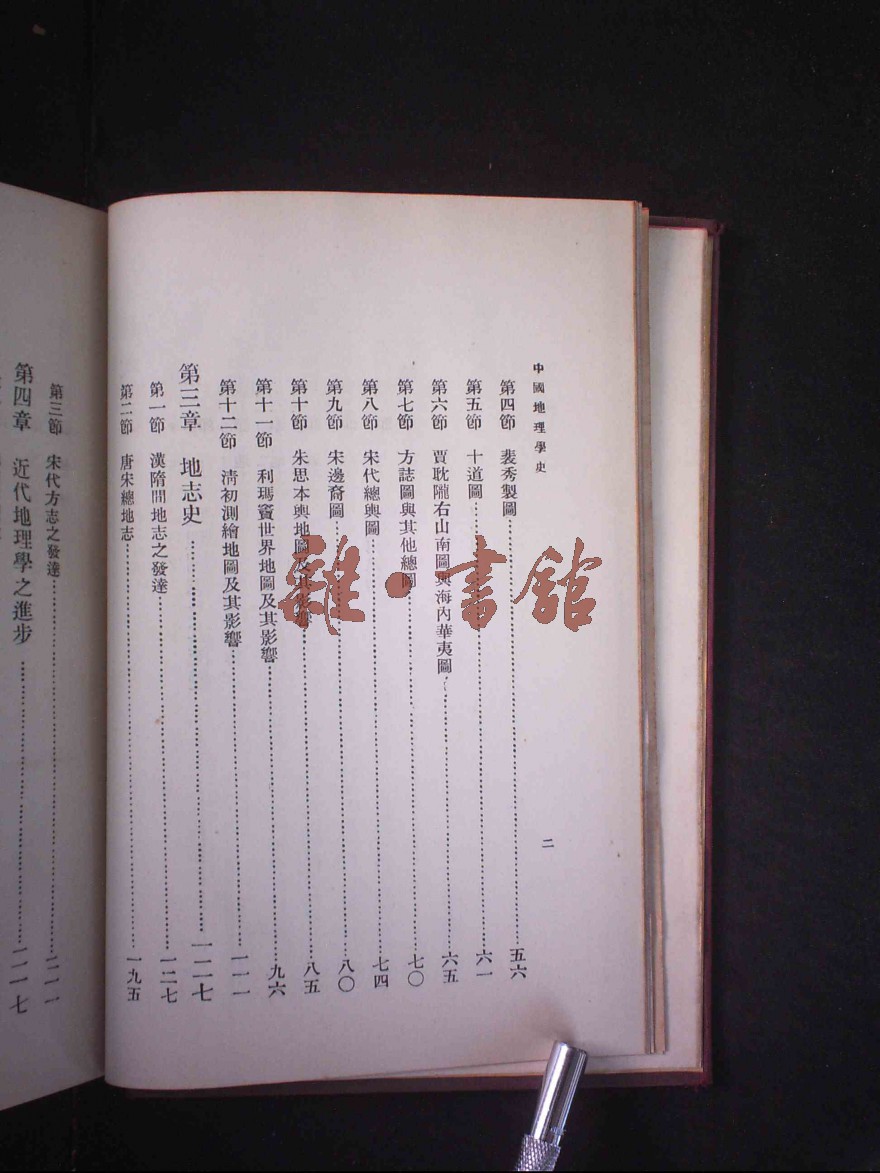 中國地理學史
二
第四節 裴秀製圖……五六
第五節 十道圖……六一
第六節 賈耽隴右山南圖與海內華夷圖……六五
第七節 方誌圖與其他總圖……七〇
第八節 宋代總輿圖……七四
第九節 宋邊裔圖……八〇
第十節 朱思本輿地圖及其影響……八五
第十一節 利瑪竇世界地圖及其影響……九六
第十二節 清初測繪地圖及其影響……一一一
第三章 地志史……一二七
第一節 漢隋間地志之發達……一二七
第二節 唐宋總地志……一九五
第三節 宋代方志之發達……二一一
第四章 近代地理學之進步……二一七
雜·書館